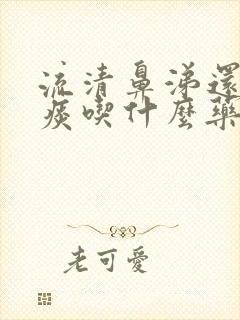 流清鼻涕還
痰喫什麽藥
老可愛